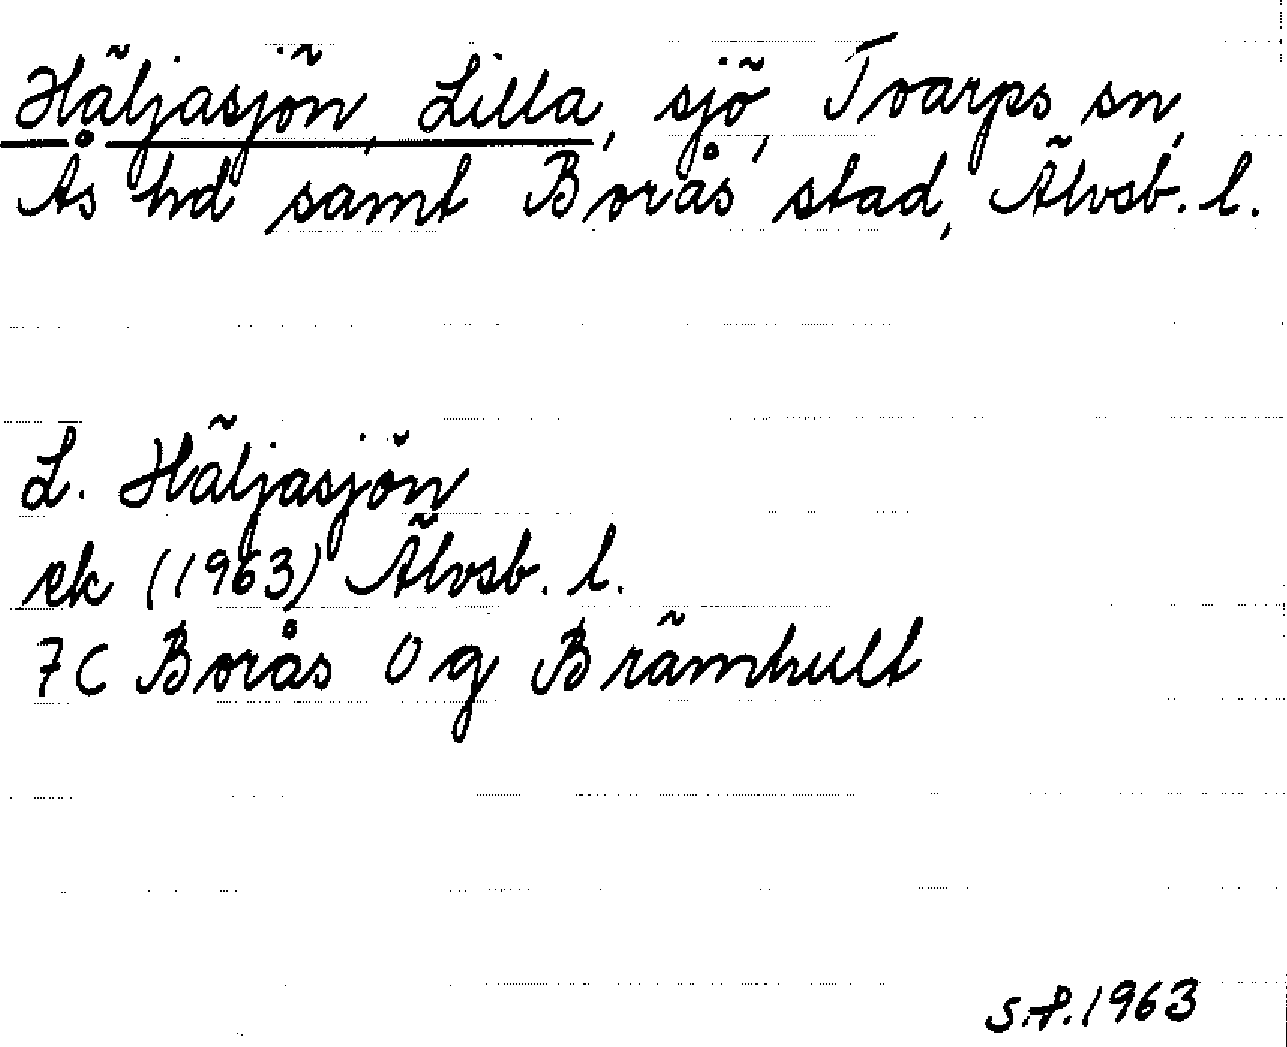 Häljasjön, Lilla, sjö, Tvarps sn,
Ås hd samt Borås stad, Älvsb. l.
L. Häljasjön
ek (1963) Älvsb. l.
7C Borås 0g Brämhult
S.A. 1963